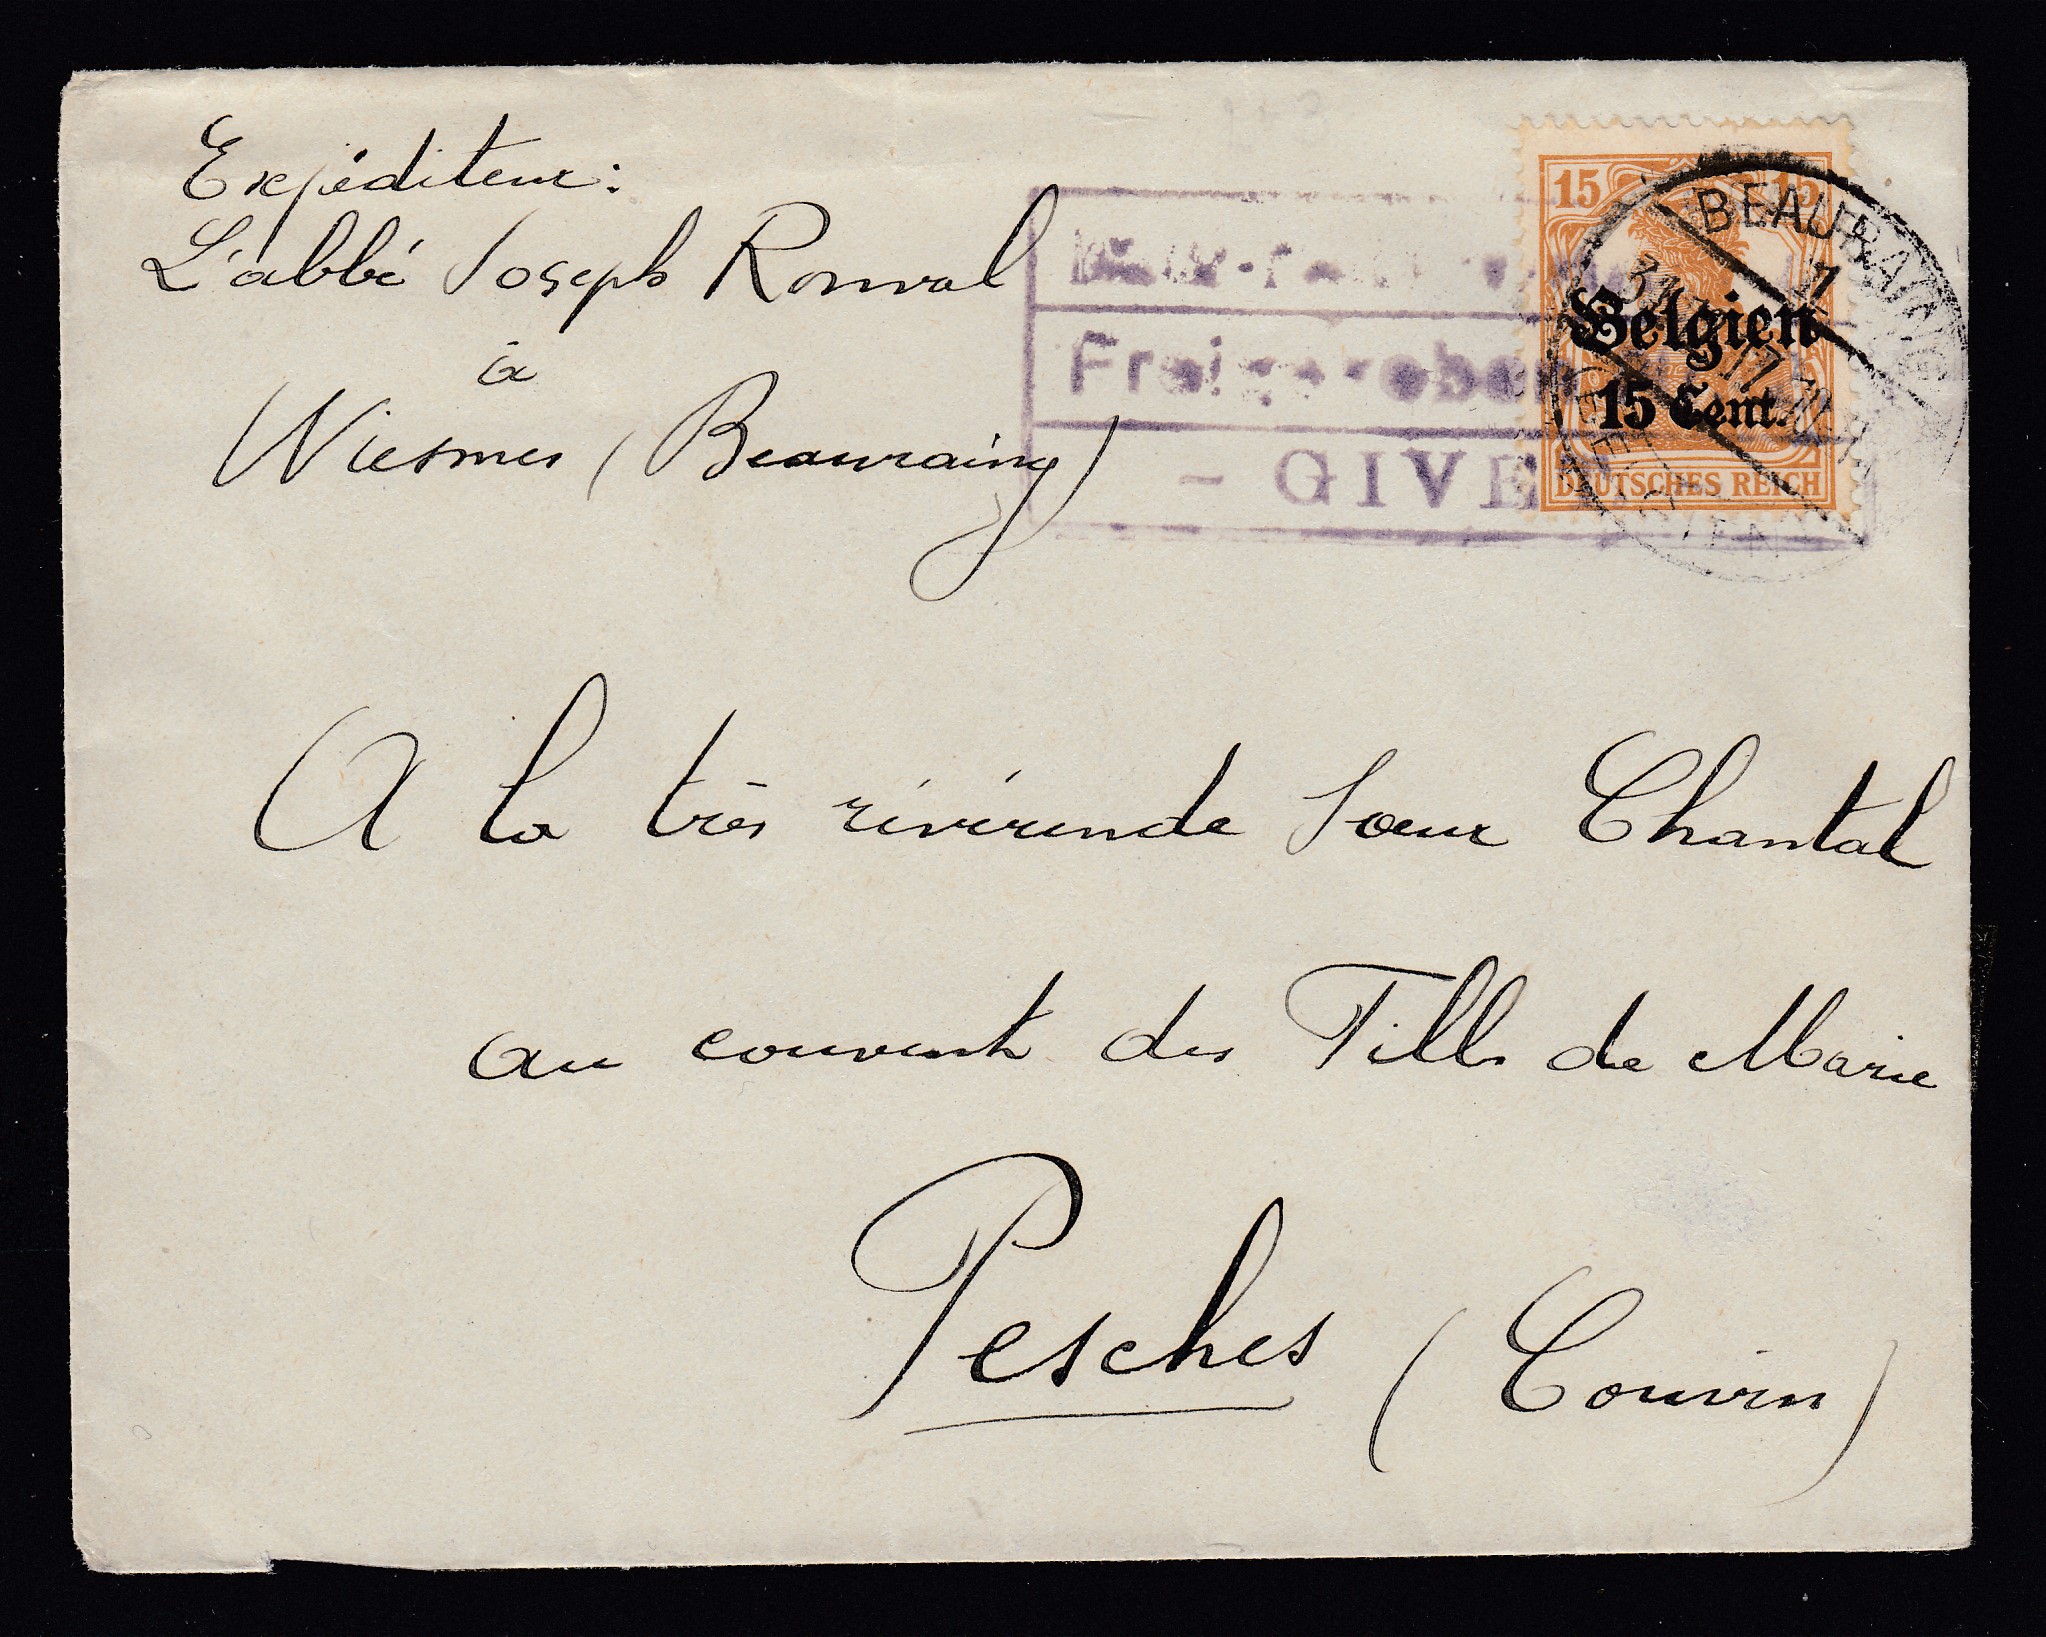 Expéditeur:
L'abbé Joseph Ronval
à
Wiesmes (Beauraing)
Freigegeben
- GIVE
15 15
Belgien
15 Cent.
DEUTSCHES REICH
BEAURAING
A la très révérende Soeur Chantal
au couvent des Filles de Marie
Pesches (Couvin)